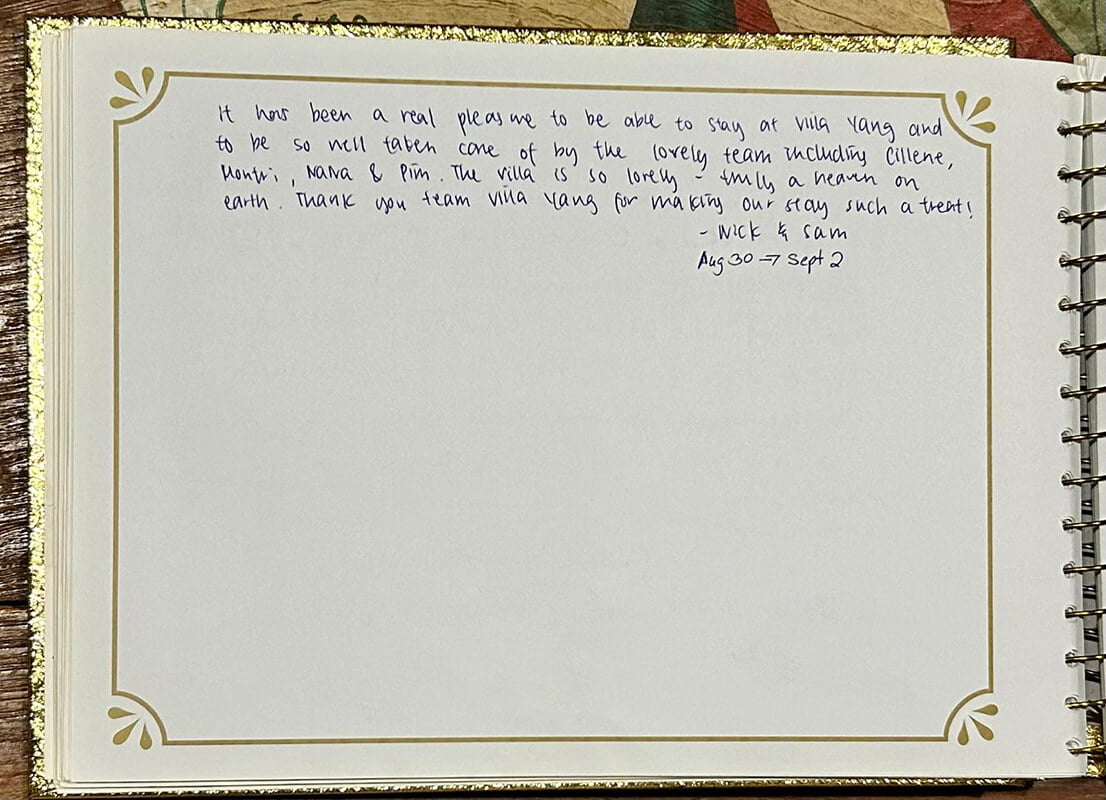 It has been a real pleasure to be able to stay at Villa Yang and
to be so well taken care of by the lovely team including Cillene,
Montri, Nana & Pim. The villa is so lovely - truly a heaven on
earth. Thank you team Villa Yang for making our stay such a treat!
- Nick & Sam
Aug 30 → Sept 2